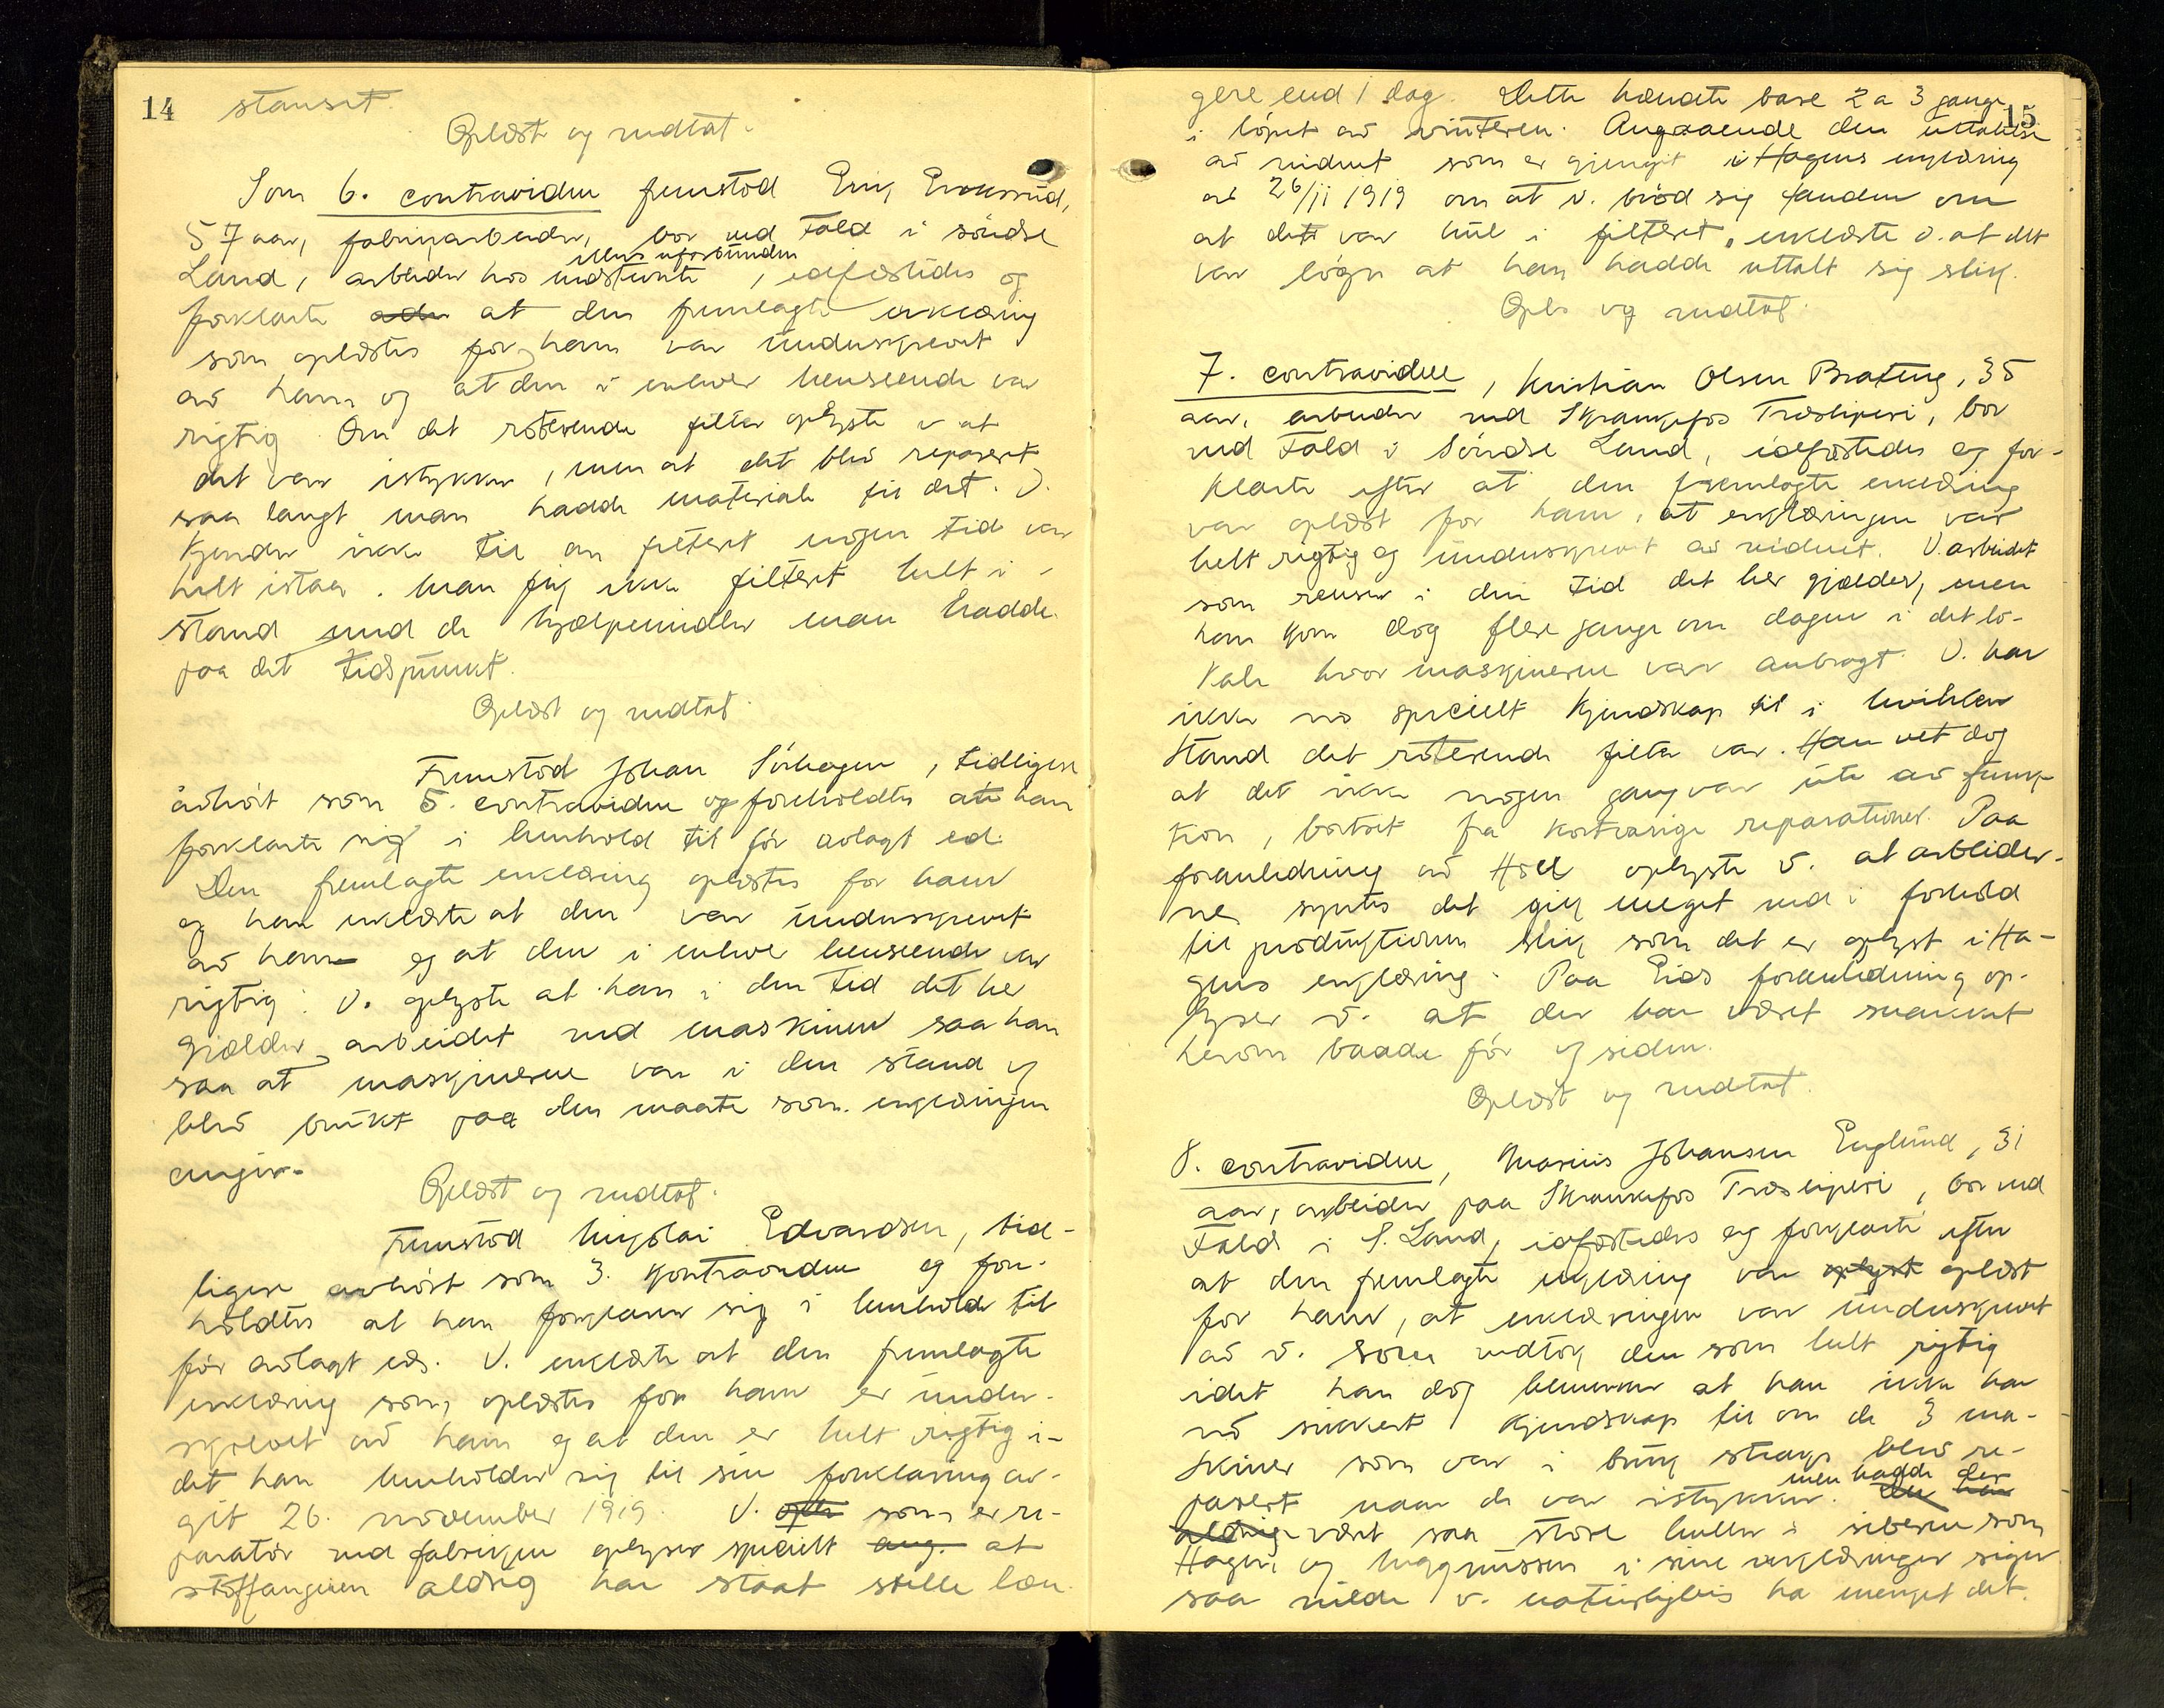 14
stanset.
Oplæst og vedtat.
Som 6. contravidne fremstod Erik Erikssrud,
57 aar, fabrikarbeider, bor ved Fald i søndre
ellers uforbunden
Land, arbeider hos indstevnte, edfæstedes og
forklarte at den fremlagte erklæring
som oplæstes for ham var underskrevet
av ham og at den i enhver henseende var
rigtig. Om det roterende filter oplyste v at
det var istykker, men at det blev reparert
saa langt man hadde materiale til det. V.
kjender ikke til om filteret nogen tid var
helt istand. Man fik ikke filteret helt i
stand med de hjælpemidler man hadde
paa det tidspunkt.
Oplæst og vedtat.
Fremstod Johan Sørhagen, tidligere
avhørt som 5. contravidne og foreholdtes at han
forklarte sig i henhold til før avlagt ed.
Den fremlagte erklæring oplæstes for ham
og han erklærte at den var underskrevet
av ham og at den i enhver henseende var
rigtig. V. oplyste at han i den tid det her
gjælder arbeidet ved maskinen saa han
saa at maskinerne var i den stand og
blev brukt paa den maate som erklæringen
angir.
Oplæst og vedtat.
Fremstod Nikolai Edvardsen, tid-
ligere avhørt som 3. kontravidne og fore-
holdtes at han forklarer sig i henhold til
før avlagt ed. V. erklærte at den fremlagte
erklæring som oplæstes for ham er under-
skrevet av ham og at den er helt rigtig i-
det han henholder sig til sin forklaring av-
git 26. november 1919. V. opl. som er re-
paratør ved fabrikken oplyser specielt ang. at
stoffangeren aldrig har staat stille læn-
15
gere end 1 dag. Dette hændte bare 2 a 3 gange
i løpet av vinteren. Angaaende den uttalelse
av vidnet som er gjengit i Hagens erklæring
av 26/11 1919 om at v. brød sig fanden om
at det var hul i filteret, erklærte v. at det
var løgn at han hadde uttalt sig slik.
Opl. og vedtat.
7. contravidne, Kristian Olsen Brateng, 35
aar, arbeider ved Skrankefos Træsliperi, bor
ved Fald i Søndre Land, edfæstedes og for-
klarte efter at den fremlagte erklæring
var oplæst for ham, at erklæringen var
helt rigtig og underskrevet av vidnet. V. arbeidet
som renser i den tid det her gjælder, men
han kom dog flere gange om dagen i det lo-
kale hvor maskinerne var anbragt. V. har
ikke no specielt kjendskap til i hvilken
stand det roterende filter var. Han vet dog
at det ikke nogen gang var ute av funk-
tion, bortset fra kortvarige reparationer. Paa
foranledning av Hoel oplyste v. at arbeider-
ne syntes det gik meget ned i forhold
til produktionen slik som det er oplyst i Ha-
gens erklæring. Paa Eids foranledning op-
lyser v. at der har været snakket
herom baade før og siden.
Oplæst og vedtat.
8. contravidne, Marius Johansen Englund, 31
aar, arbeider paa Skrankefos Træsliperi, bor ved
Fald i S. Land, edfæstedes og forklarte efter
at den fremlagte erklæring var oplyst oplæst
for ham, at erklæringen var underskrevet
av v. som vedtok den som helt rigtig
idet han dog bemerker at han ikke har
no sikkert kjendskap til om de 3 ma-
skiner som var i bruk straks blev re-
men hadde der
parert naar de var istykker. Der har
aldrig været saa store huller i silerne som
Hagen og Magnussen i sine erklæringer siger
saa vilde v. naturligvis ha merket det.